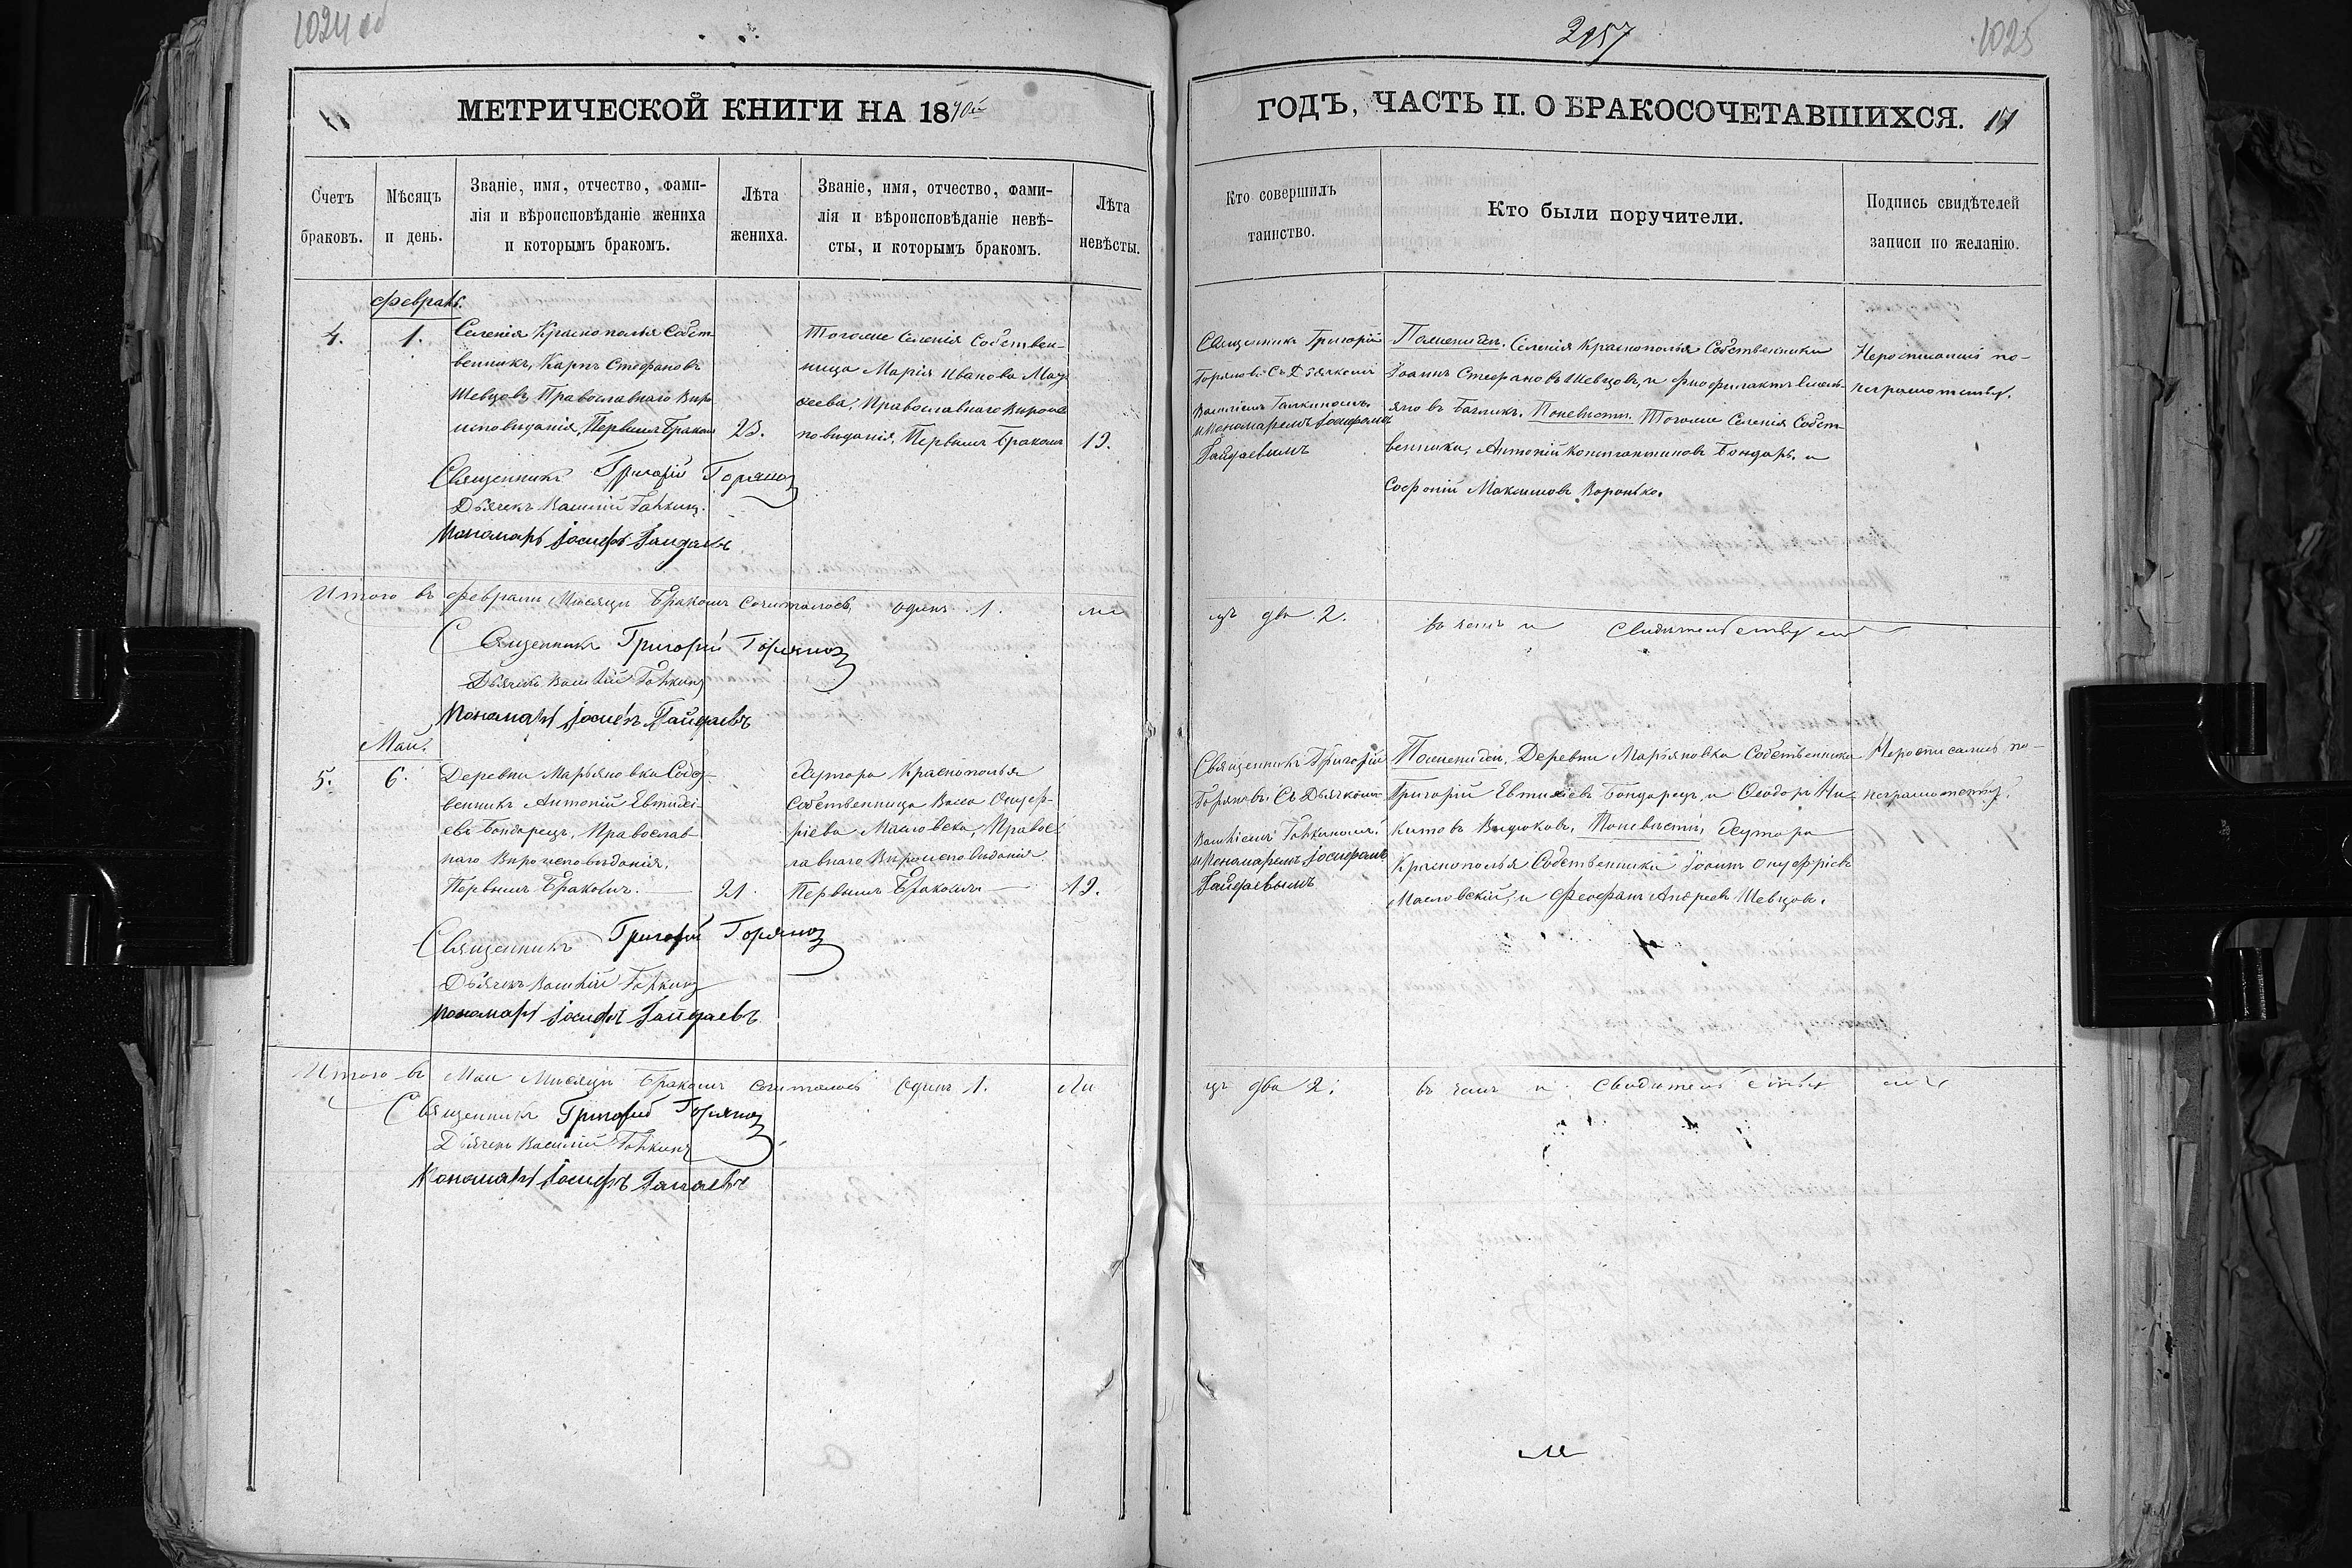 1024 об
2157
1025
МЕТРИЧЕСКОЙ КНИГИ НА 1870й
ГОДЪ, ЧАСТЬ II. О БРАКОСОЧЕТАВШИХСЯ. 17
Счетъ
браковъ.
Мѣсяцъ
и день.
Званіе, имя, отчество, фами-
лія и вѣроисповѣданіе жениха
и которымъ бракомъ.
Лѣта
жениха.
Званіе, имя, отчество, фами-
лія и вѣроисповѣданіе невѣ-
сты, и которымъ бракомъ.
Лѣта
невѣсты.
Кто совершилъ
таинство.
Кто были поручители.
Подпись свидѣтелей
записи по желанію.
Февраль.
4.
1.
Селенія Краснополья Собст-
венникъ, Карпъ Стефановъ
Шевцовъ, Православнаго Вѣро
исповѣданія, Первымъ Бракомъ
23.
Тогоже Селенія Собствен-
ница Марія Иванова
Православнаго Вѣроис
повѣданія, Первымъ Бракомъ
19.
Священникъ Григорій
Горяновъ Съ Дьячкомъ
Василіемъ Галкинымъ
и Пономаремъ Іосифомъ
Гайдаевымъ
По женихѣ. Селенія Краснополья Собственники
Іоаннъ Стефановъ Шевцовъ, и Феофилактъ
По невѣстѣ. Тогоже Селенія Собст-
венники, Антоній Константиновъ Бондарь, и
Софоній Максимовъ Воронько.
Неросписались по-
неграмотству.
Священникъ Григорій Горяновъ
Дьячекъ Василій Галкинъ.
Пономарь Іосифъ Гайдаевъ
Итого въ Февралѣ Мѣсяцѣ Бракомъ Сочиталось, одинъ 1. ли
цъ два 2. въ чемъ и свидѣтельствуемъ
Священникъ Григорій Горяновъ
Дьячекъ Василій Галкинъ
Пономарь Іосифъ Гайдаевъ
Май.
5.
6.
Деревни Марьяновки Собст-
венникъ Антоній Евтихі-
евъ Бондарецъ, Православ
наго Вѣроисповѣданія,
Первымъ Бракомъ.
21
Хутора Краснополья
Собственница Васса Онуф-
ріева Масловска, Правос
лавнаго Вѣроисповѣданія
Первымъ Бракомъ
19.
Священникъ Григорій
Горяновъ Съ Дьячкомъ
Василіемъ Галкинымъ
и Пономаремъ Іосифомъ
Гайдаевымъ
По женихѣ, Деревни Марьяновки Собственники
Григорій Евтихіевъ Бондарецъ, и Феодоръ Ни-
китовъ По невѣстѣ, Хутора
Краснополья Собственники Іоаннъ Онуфріевъ
Масловскій, и Феофанъ Андреевъ Шевцовъ.
Неросписались по-
неграмотству.
Священникъ Григорій Горяновъ
Дьячекъ Василій Галкинъ
Пономарь Іосифъ Гайдаевъ
Итого въ Маѣ Мѣсяцѣ Бракомъ сочиталось Одинъ 1. Ли
цъ два 2. въ чемъ и свидѣтельствуемъ
Священникъ Григорій Горяновъ
Дьячекъ Василій Галкинъ
Пономарь Іосифъ Гайдаевъ